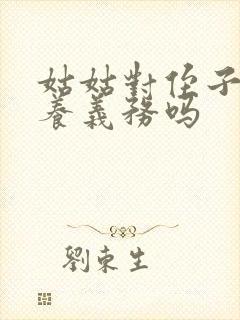 姑姑對侄子
養義務吗
劉東生